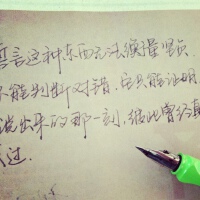 誓言这种东西无法衡量坚贞
不能判断对错,它只能证明
说出来的那一刻,彼此曾经真
过.